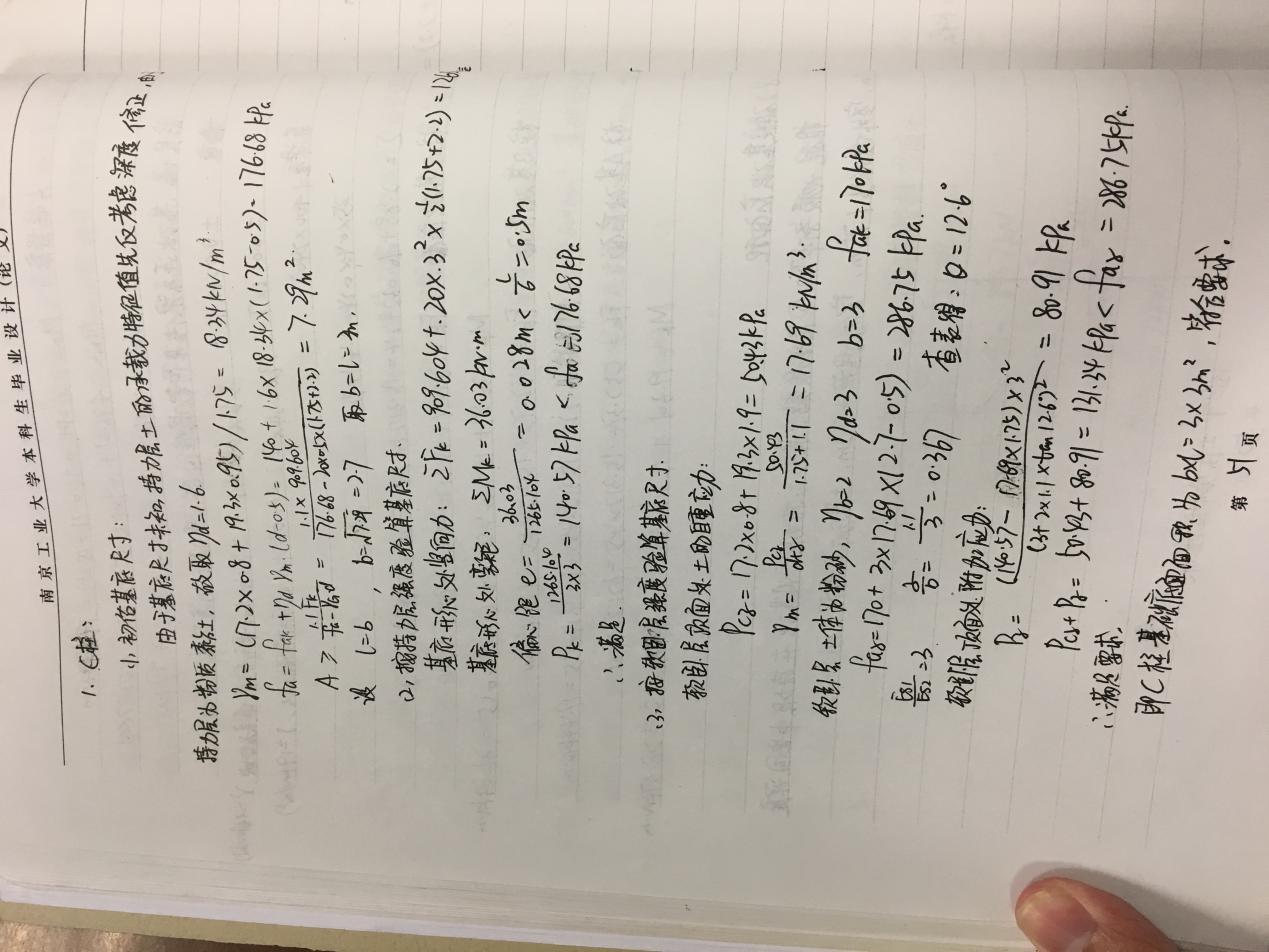 南京工业大学本科生毕业设计(论文)
1. C柱:
(1, 初估基底尺寸:
由于基底尺寸未知,持力层土的承载力特征值先仅考虑深度修正,
持力层为粉质黏土,故取 ηd=1.6.
γm = (17.2×0.8+19.3×0.95)/1.75 = 18.34 kN/m³.
fa = fak + ηd γm (d-0.5) = 140 + 1.6×18.34×(1.75-0.5) = 176.68 kPa
A ≥ 1.1Fk/(fa-γGd) = 1.1×909.604/(176.68-20×0.5×(1.75+2.2)) = 7.29 m².
设 l=b , b=√7.29=2.7 取 b=l=3m.
(2, 按持力层强度验算基底尺寸.
基底形心处竖向力: ΣFk = 909.604+20×3²×½(1.75+2.2) = 126
基底形心处弯矩: ΣMk = 36.03 kN·m
偏心距 e = 36.03/1265.104 = 0.028m < l/6 = 0.5m
Pk = 1265.104/(3×3) = 140.57 kPa < fa = 176.68 kPa
∴满足.
(3, 按软卧层强度验算基底尺寸.
软卧层顶面处土的自重应力:
Pcz = 17.2×0.8+19.3×1.9 = 50.43 kPa
γm = Pcz/(d+z) = 50.43/(1.75+1.1) = 17.69 kN/m³.
软卧层土体为粉砂, ηb=2 ηd=3 b=3 fak=170kPa
faz = 170 + 3×17.69×(2.7-0.5) = 286.75 kPa.
Es1/Es2=3 z/b = 1.1/3 = 0.367 查表得: θ=12.6°
软卧层顶面处附加应力:
Pz = (140.57-17.69×1.75)×3²/(3+2×1.1×tan12.6°)² = 80.91 kPa
Pcz+Pz = 50.43+80.91 = 131.34 kPa < faz = 286.75kPa.
∴满足要求.
即C柱基础底面面积为b×l=3×3m², 符合要求.
第 51 页